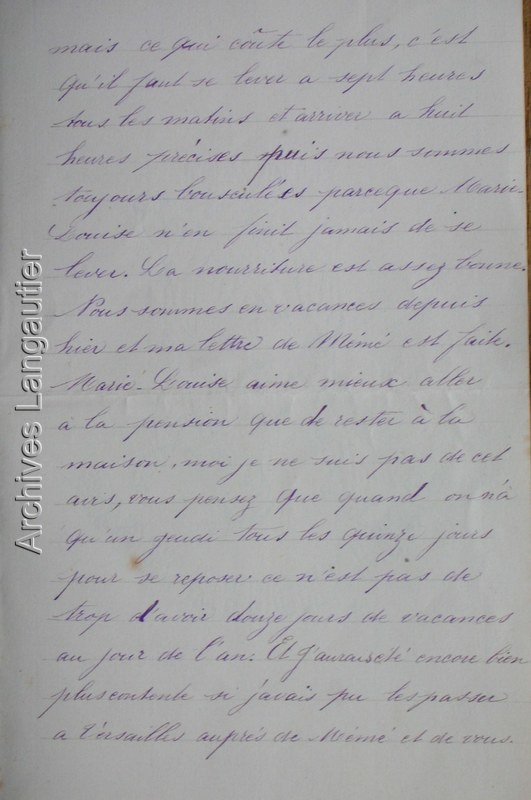 mais ce qui coûte le plus, c'est
qu'il faut se lever a sept heures
tous les matins et arriver a huit
heures précises puis nous sommes
toujours bousculées parceque Marie
Louise n'en finit jamais de se
lever. La nourriture est assez bonne.
Nous sommes en vacances depuis
hier et ma lettre de Mémé est faite.
Marie-Louise aime mieux aller
a la pension que de rester à la
maison, moi je ne suis pas de cet
avis, vous pensez que quand on n'a
qu'un jeudi tous les quinze jours
pour se reposer ce n'est pas de
trop d'avoir douze jours de vacances
au jour de l'an. Et j'aurais été encore bien
plus contente si j'avais pu les passer
a Versailles auprés de Mémé et de vous.
Archives Langautier